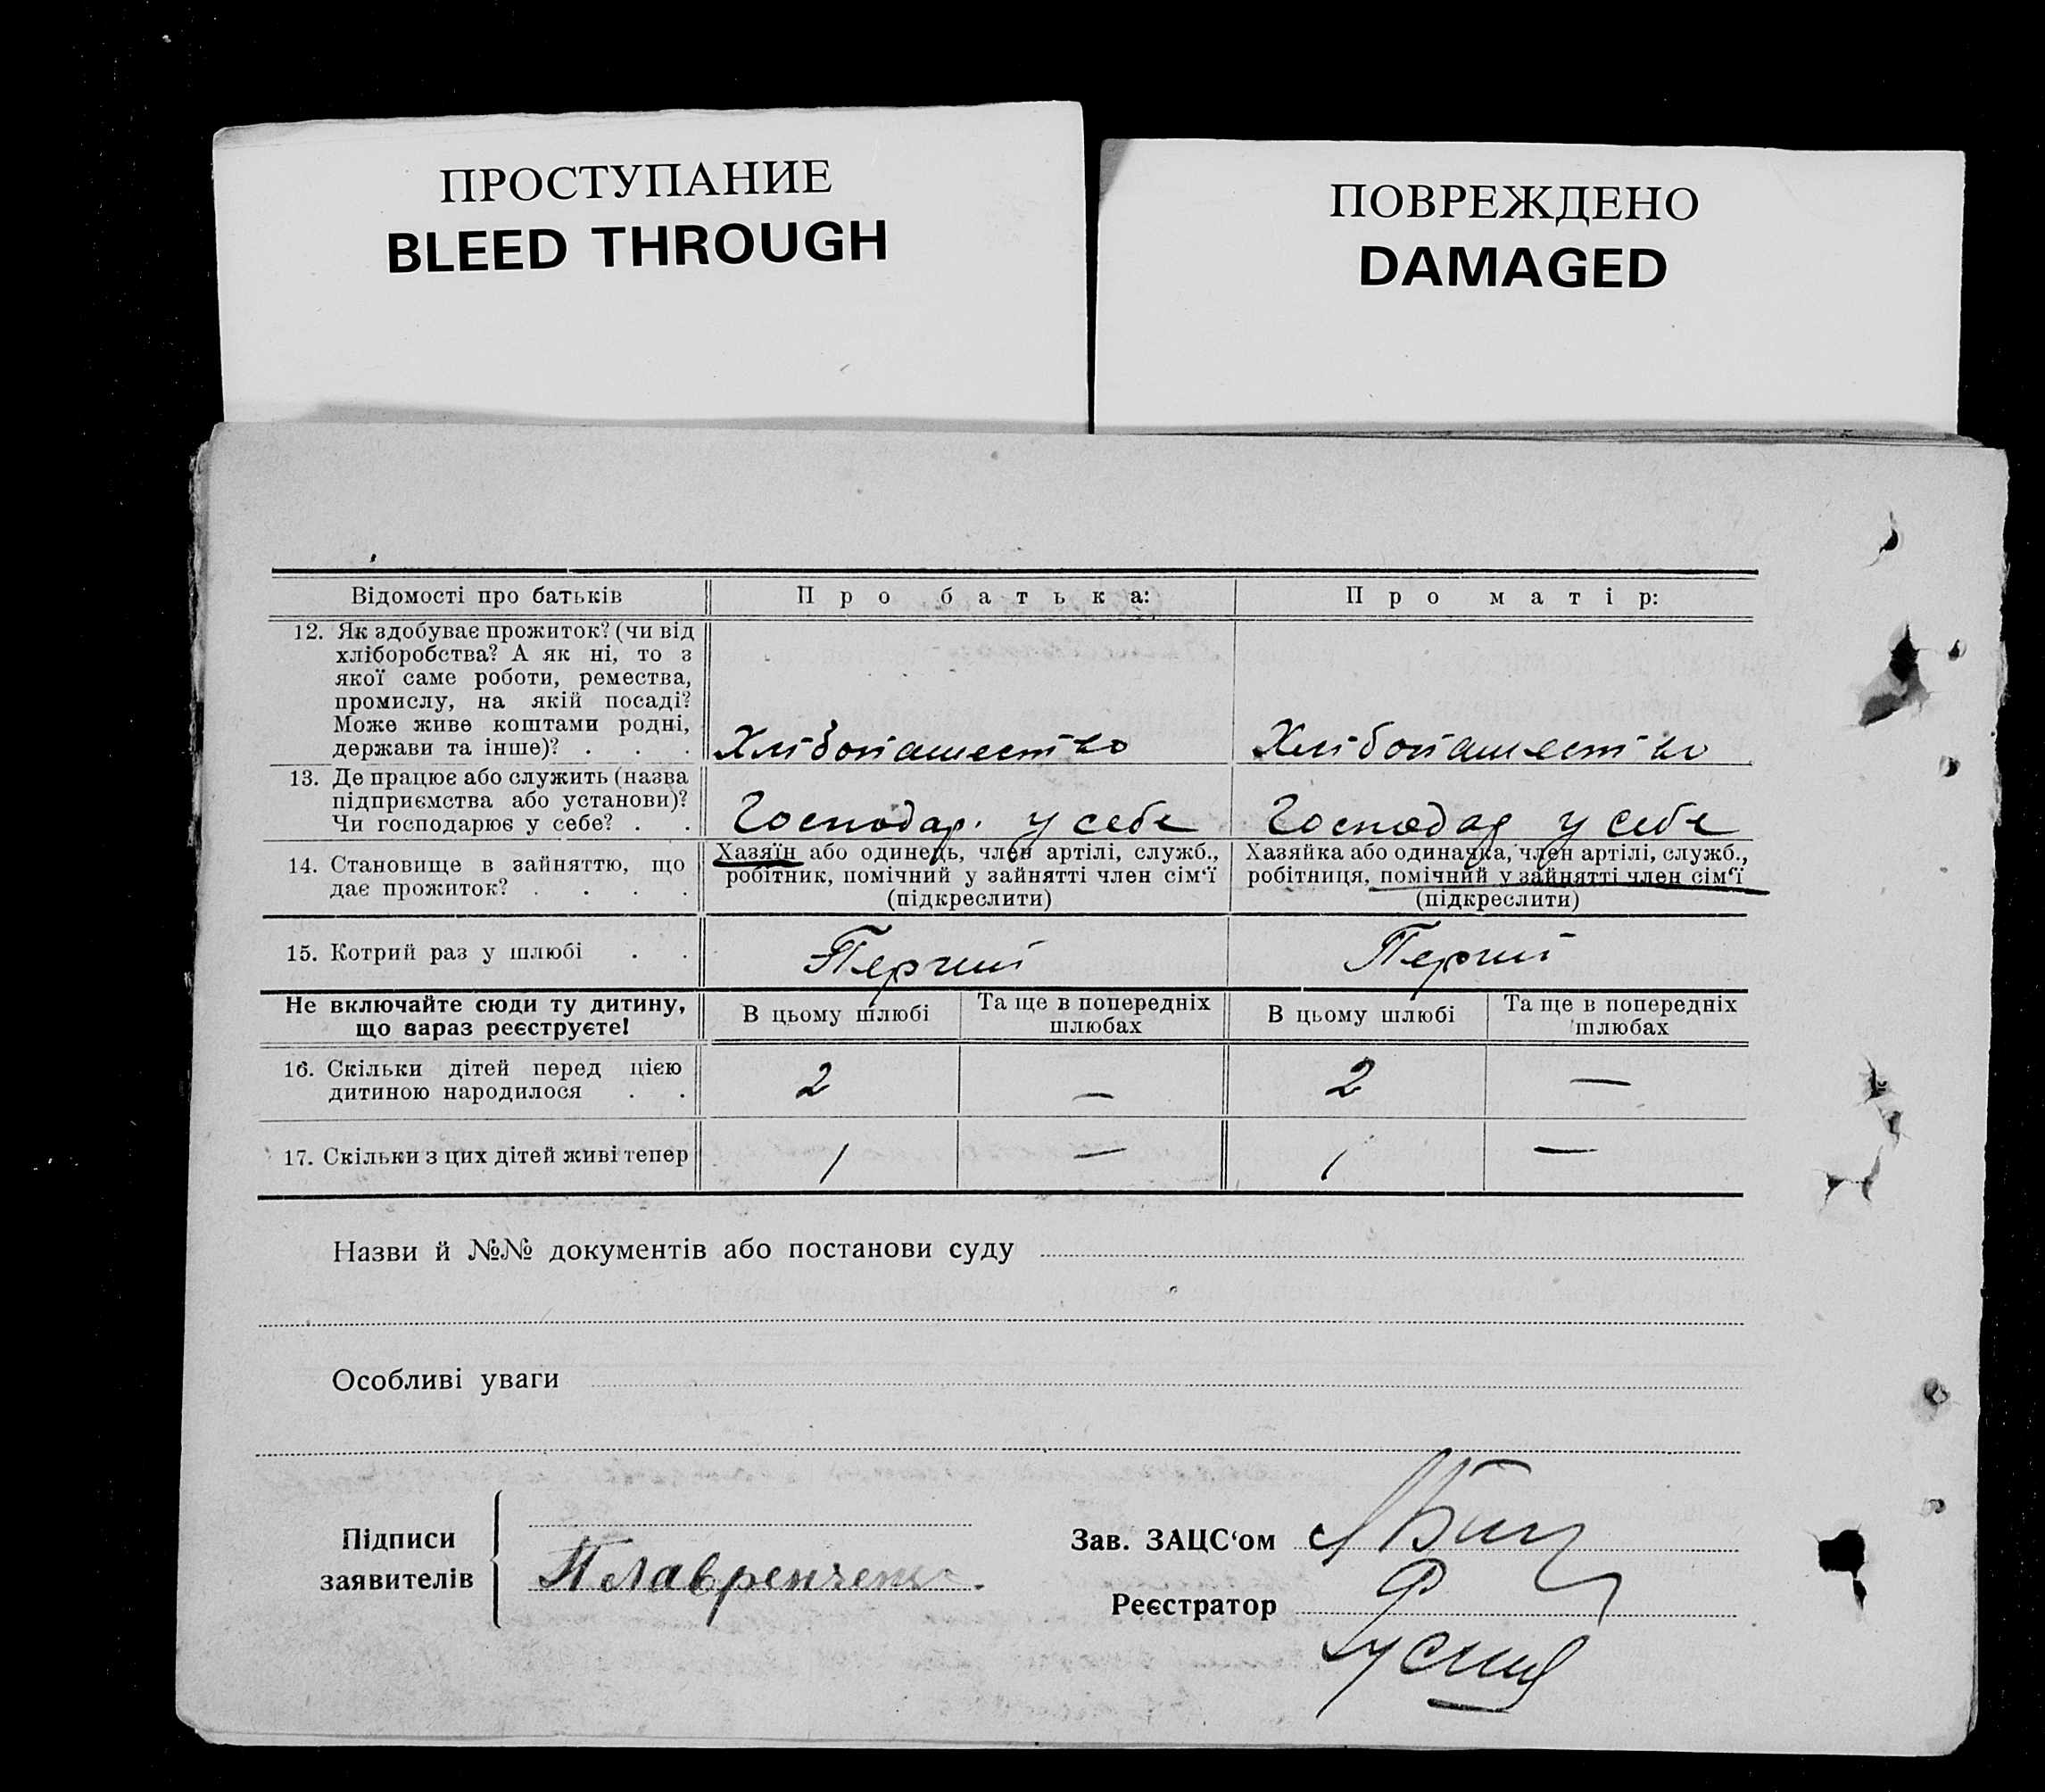 ПРОСТУПАНИЕ
BLEED THROUGH
ПОВРЕЖДЕНО
DAMAGED
Відомості про батьків
Про батька:
Про матір:
12. Як здобуває прожиток? (чи від
хліборобства? А як ні, то з
якої саме роботи, ремества,
промислу, на якій посаді?
Може живе коштами родні,
держави та інше)? . . .
Хлібопашество
Хлібопашество
13. Де працює або служить (назва
підприємства або установи)?
Чи господарює у себе? . .
Господар. у себе
Господар у себе
14. Становище в зайняттю, що
дає прожиток? . . . .
Хазяїн або одинець, член артілі, служб.,
робітник, помічний у зайнятті член сім‘ї
(підкреслити)
Хазяйка або одиначка, член артілі, служб.,
робітниця, помічний у зайнятті член сім‘ї
(підкреслити)
15. Котрий раз у шлюбі . .
Перчий
Перчий
Не включайте сюди ту дитину,
що зараз реєструєте!
В цьому шлюбі
Та ще в попередніх
шлюбах
В цьому шлюбі
Та ще в попередніх
шлюбах
16. Скільки дітей перед цією
дитиною народилося . .
2
—
2
—
17. Скільки з цих дітей живі тепер
1
—
1
—
Назви й №№ документів або постанови суду
Особливі уваги
Підписи
заявителів
П Лавренченко
Зав. ЗАЦС‘ом
Реєстратор